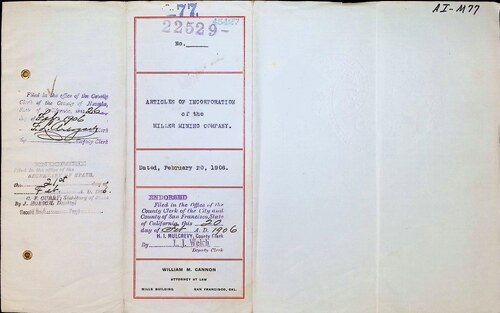 177.
22529-
A I - M77
No.
ARTICLES OF INCORPORATION
of the
MINING COMPANY.
Dated, February 20, 1906.
ENDORSED
Filed in the Office of the
County Clerk of the City and
County of San Francisco, State
of California, this 20
day of Feb A.D. 1906
H. I. MULCREVY, County Clerk
By L. J. Welch
Deputy Clerk
WILLIAM M. CANNON
ATTORNEY AT LAW
MILLS BUILDING SAN FRANCISCO, CAL.
Filed in the office of the County
Clerk of the County of Nevada,
State of California, this 26
day of Feb 1906
Deputy Clerk
Filed in the office of the
the 21st day of
Feb. A.D. 1906.
C. F. CURRY, Secretary of State
By J. HOESCH, Deputy